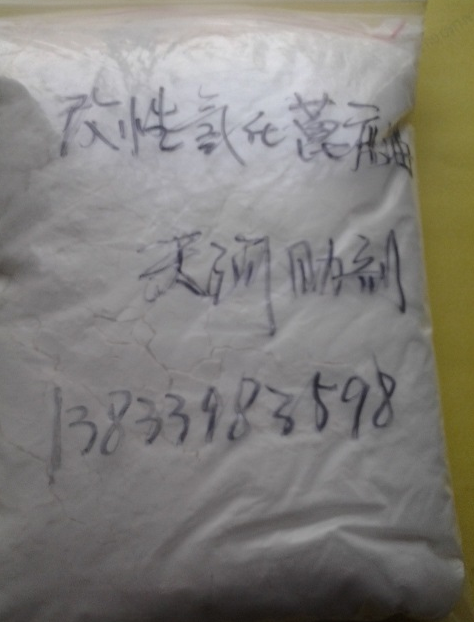 改性氢化蓖麻油
天河助剂
13833983598